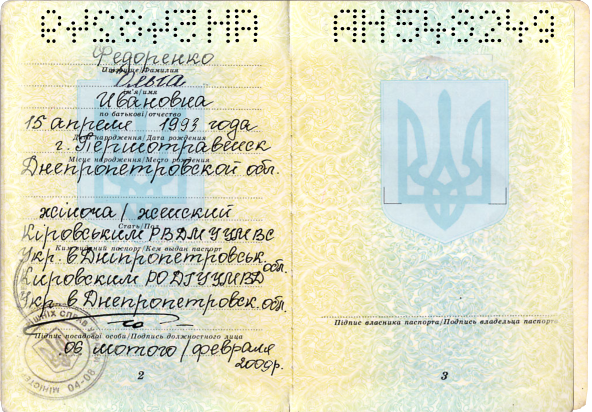 АН548249
Федоренко
Прізвище/Фамилия
Ольга
Ім'я/имя
Ивановна
по батькові/отчество
15 апреля 1993 года
Дата народження/Дата рождения
г. Першотравенск
Місце народження/Место рождения
Днепропетровской обл.
жіноча/женский
Стать/Пол
Кіровським РВДМУУМВС
Ким виданий паспорт/Кем выдан паспорт
Укр. в Дніпропетровськ. обл.
Кировским РОДГУУМВД
Укр. в Днепропетровск. обл.
Підпис посадової особи/Подпись должностного лица
06 лютого/февраля
2009р.
2
04-08
АН548249
Підпис власника паспорта/Подпись владельца паспорта
3